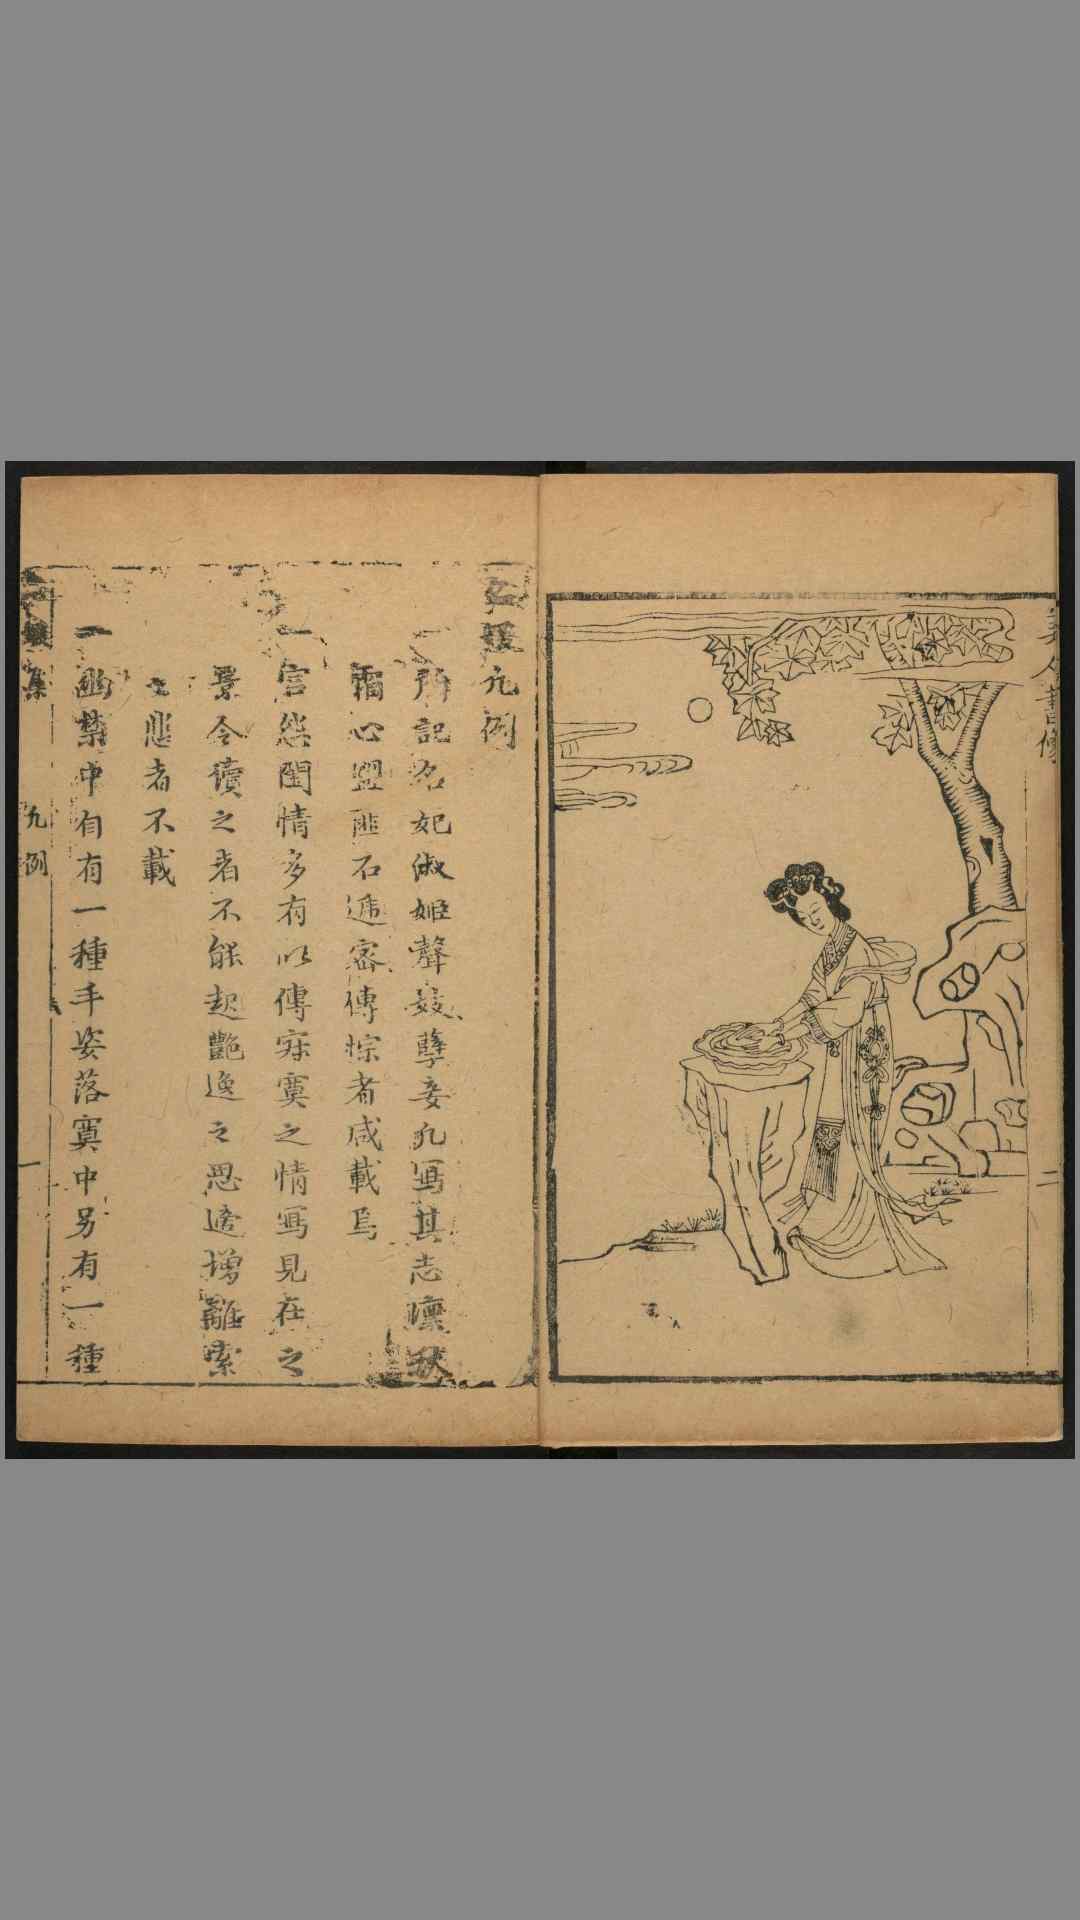 美人書
二
凡例
一所記名妃淑姬聲妓孽妾凡寫其志凜秋
霜心盟匪石遞密傳悰者咸載焉
一宮怨閨情多有以傳寂寞之情寫見在之
景令讀之者不能起艷逸之思適增離索
之悲者不載
一幽禁中自有一種丰姿落寞中另有一種
集
凡例
一